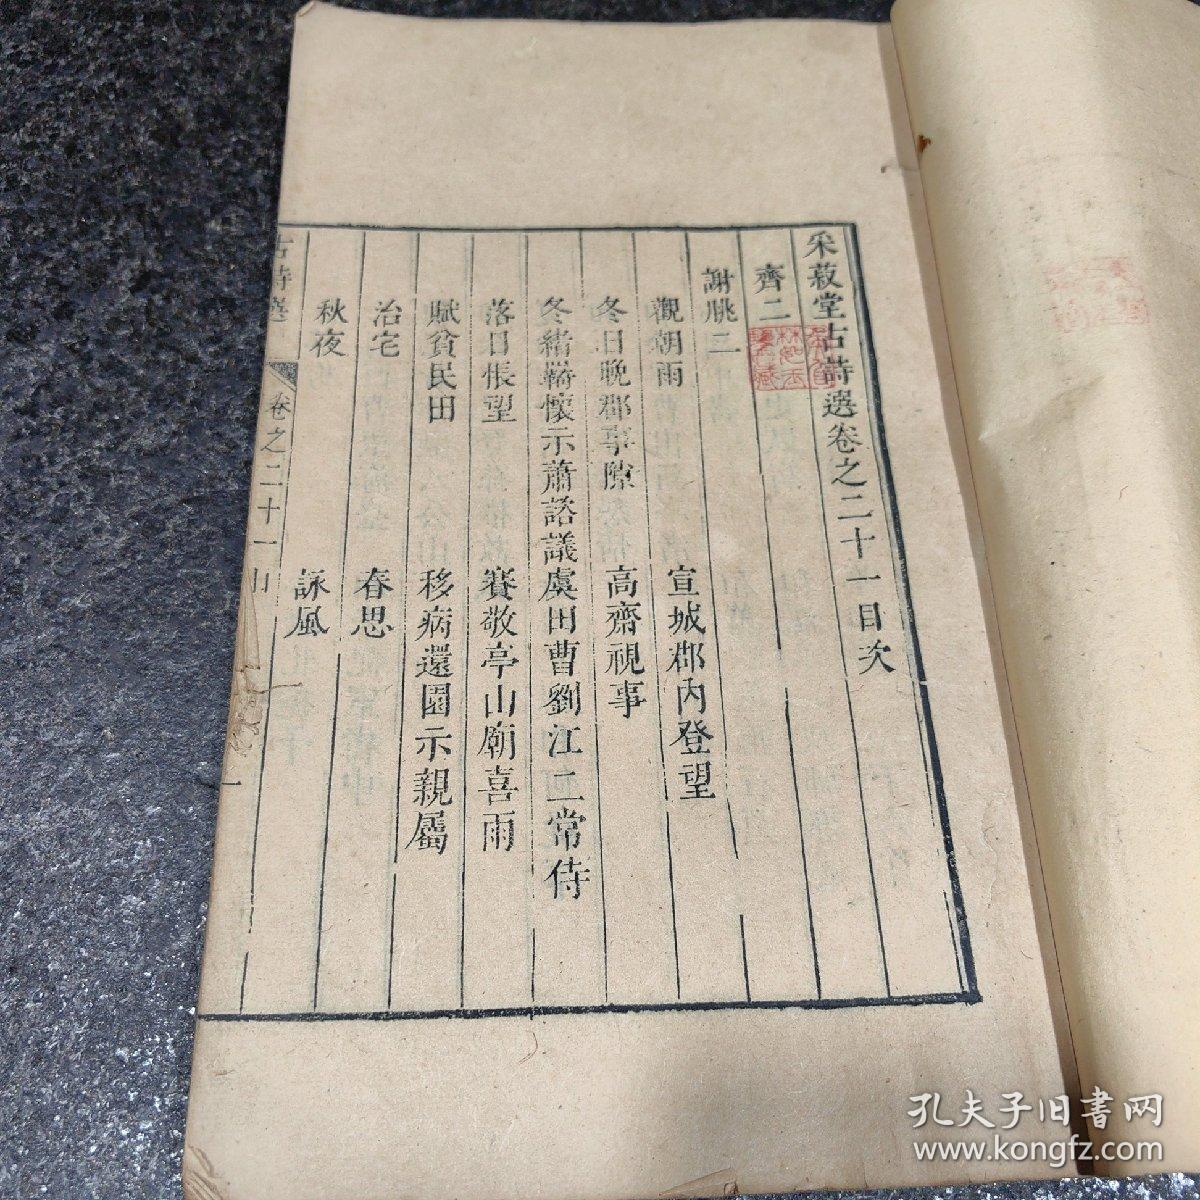 采菽堂古詩選卷之二十一目次
齊二
謝朓三
觀朝雨 宣城郡內登望
冬日晚郡事隙 高齋視事
冬緒羈懷示蕭諮議虞田曹劉江二常侍
落日悵望 賽敬亭山廟喜雨
賦貧民田 移病還園示親屬
治宅 春思
秋夜 詠風
古詩選 卷之二十一 一
孔夫子旧书网
www.kongfz.com